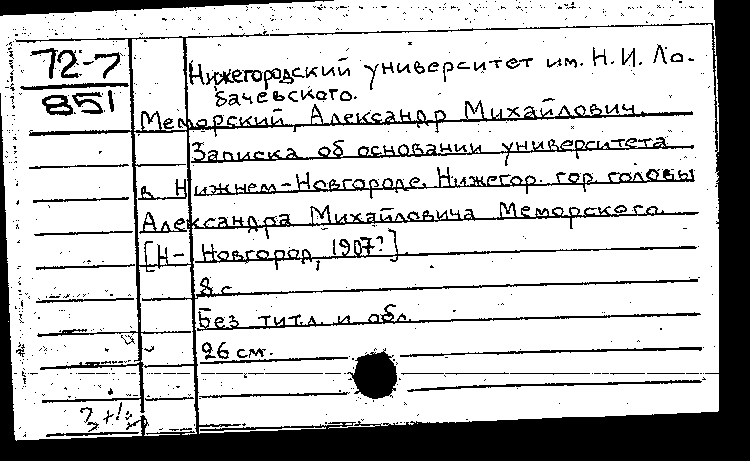 72-7
851
Нижегородский университет им. Н. И. Ло-
бачевского.
Меморский, Александр Михайлович.
Записка об основании университета
в Нижнем-Новгороде. Нижегор. гор. головы
Александра Михайловича Меморского.
[Н-Новгород, 1907?].
8 с.
Без титл. и обл.
26 см.